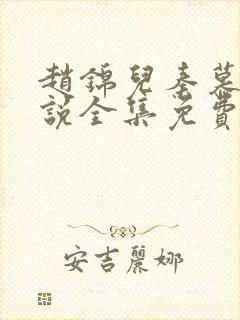 趙錦兒秦慕
說全集免費
安吉麗娜